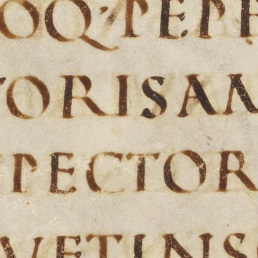 OQ·PEPE
TORISAM
PECTOR
VETINS